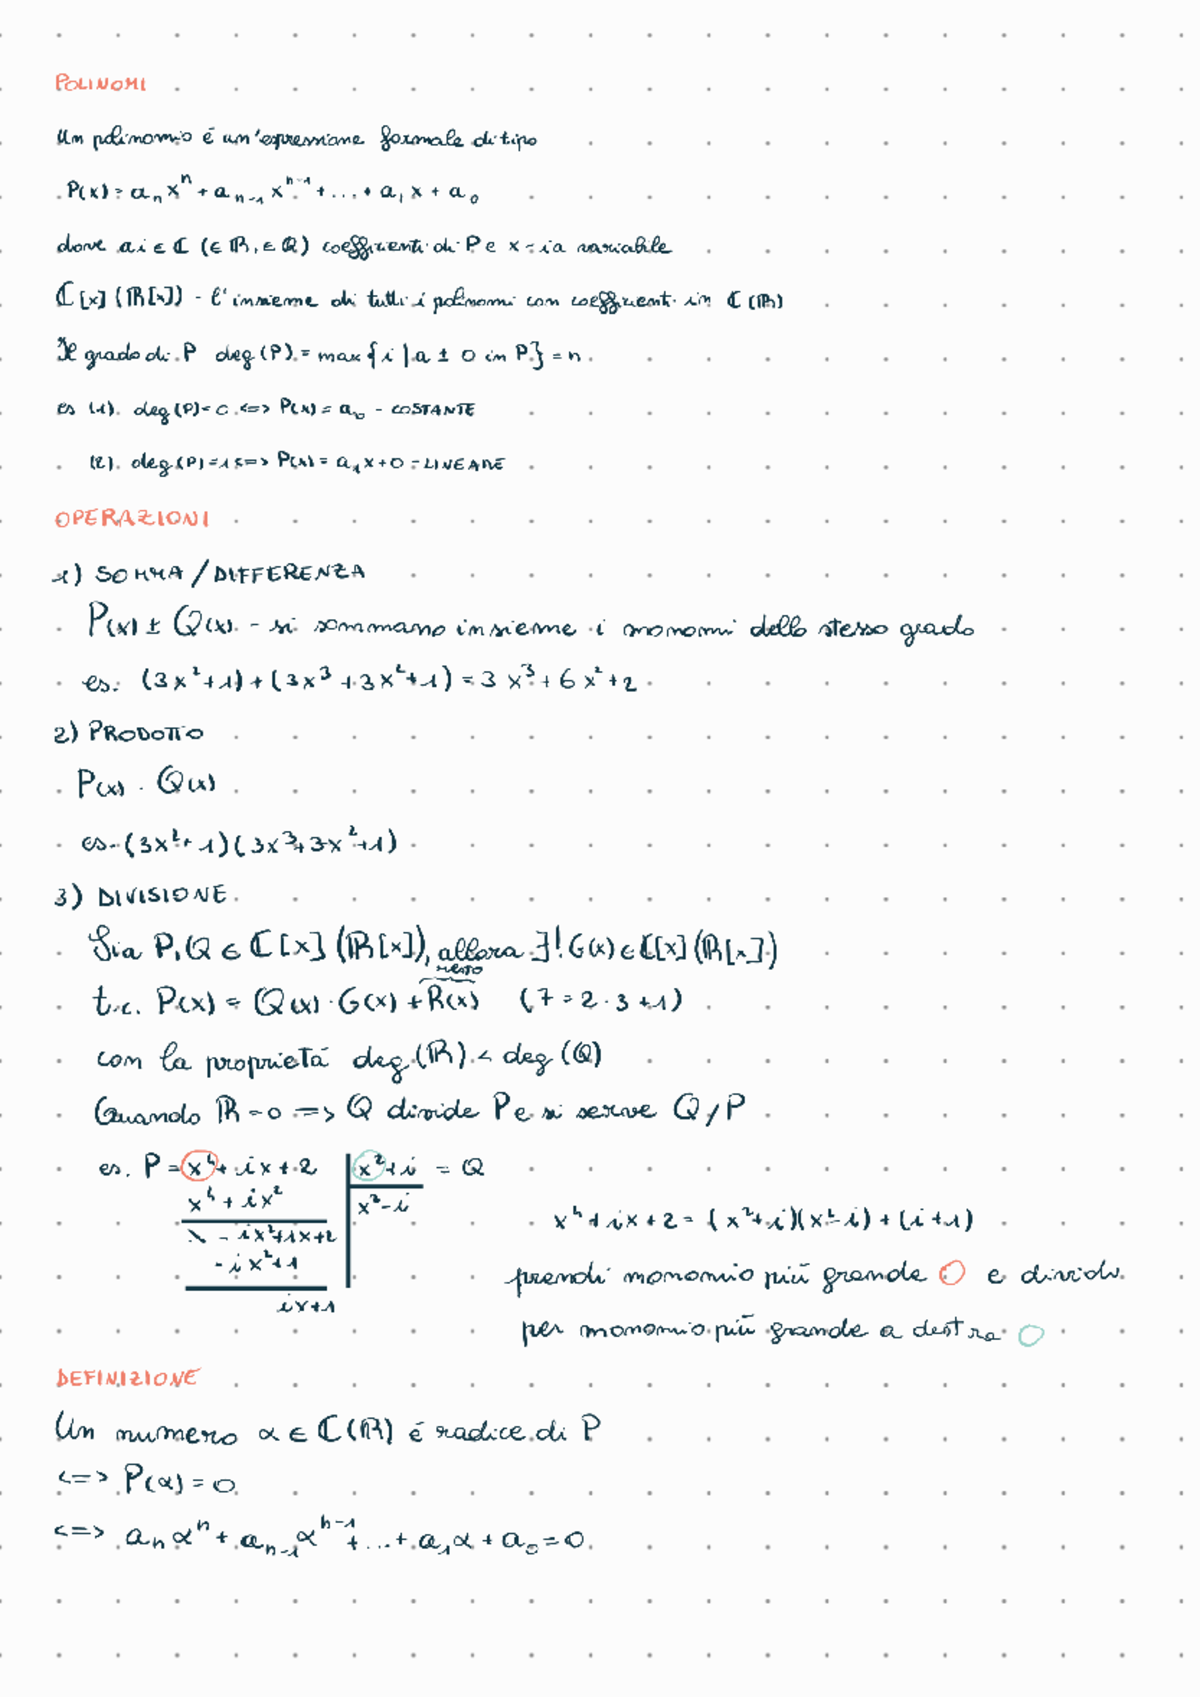 POLINOMI
Un polinomio é un'espressione formale di tipo
P(x) = aₙxⁿ + aₙ₋₁xⁿ⁻¹ + ... + a₁x + a₀
dove ai ∈ ℂ (∈ ℝ, ∈ ℚ) coefficienti di P e x = la variabile
ℂ[x] (ℝ[x]) - l'insieme di tutti i polinomi con coefficienti in ℂ (ℝ)
Il grado di P deg(P) = max{i | a ± 0 in P} = n
es (1). deg(P) = 0 <=> P(x) = a₀ - COSTANTE
(2). deg(P) = 1 <=> P(x) = a₁x + 0 - LINEARE
OPERAZIONI
1) SOMMA / DIFFERENZA
P(x) ± Q(x) - si sommano insieme i monomi dello stesso grado
es: (3x² + 1) + (3x³ + 3x² + 1) = 3x³ + 6x² + 2
2) PRODOTTO
P(x) · Q(x)
es - (3x² + 1)(3x³ + 3x² + 1)
3) DIVISIONE
Sia P, Q ∈ ℂ[x] (ℝ[x]), allora ∃! G(x) ∈ ℂ[x] (ℝ[x])
resto
t.c. P(x) = Q(x) · G(x) + R(x) (7 = 2 · 3 + 1)
con la proprietá deg(R) < deg(Q)
Quando R = 0 => Q divide P e si serve Q/P
es. P = x⁴ + ix + 2 | x² + i = Q
x⁴ + ix² | x² - i
\ - ix² + ix + 2
- ix² + 1
ix + 1
x⁴ + ix + 2 = (x² + i)(x² - i) + (i + 1)
prendi monomio piú grande O e dividi
per monomio piú grande a destra O
DEFINIZIONE
Un numero α ∈ ℂ (ℝ) é radice di P
<=> P(α) = 0
<=> aₙαⁿ + aₙ₋₁αⁿ⁻¹ + ... + a₁α + a₀ = 0